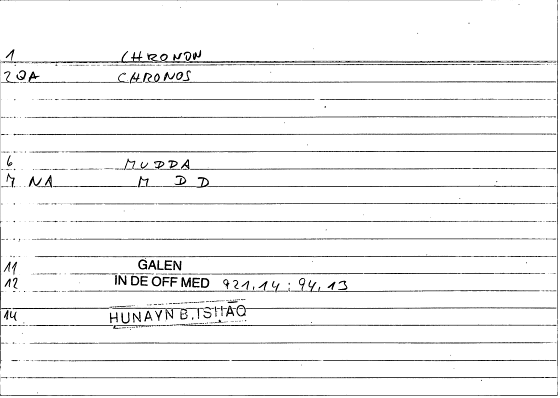 1 CHRONON
2 QA CHRONOS
6 MUDDA
7 NA M D D
11 GALEN
12 IN DE OFF MED 921,14 : 94,13
14 HUNAYN B. ISHAQ